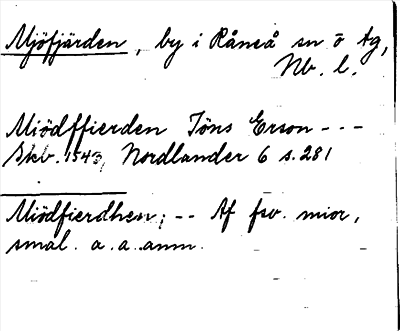 Mjöfjärden, by i Råneå sn o tg,
Nb. l.
Miödffierden Jöns Erson - - -
Skb. 1543, Nordlander 6 s. 281
Miödfierdhen; - - Af fsv. mior,
smal. a. a. anm.